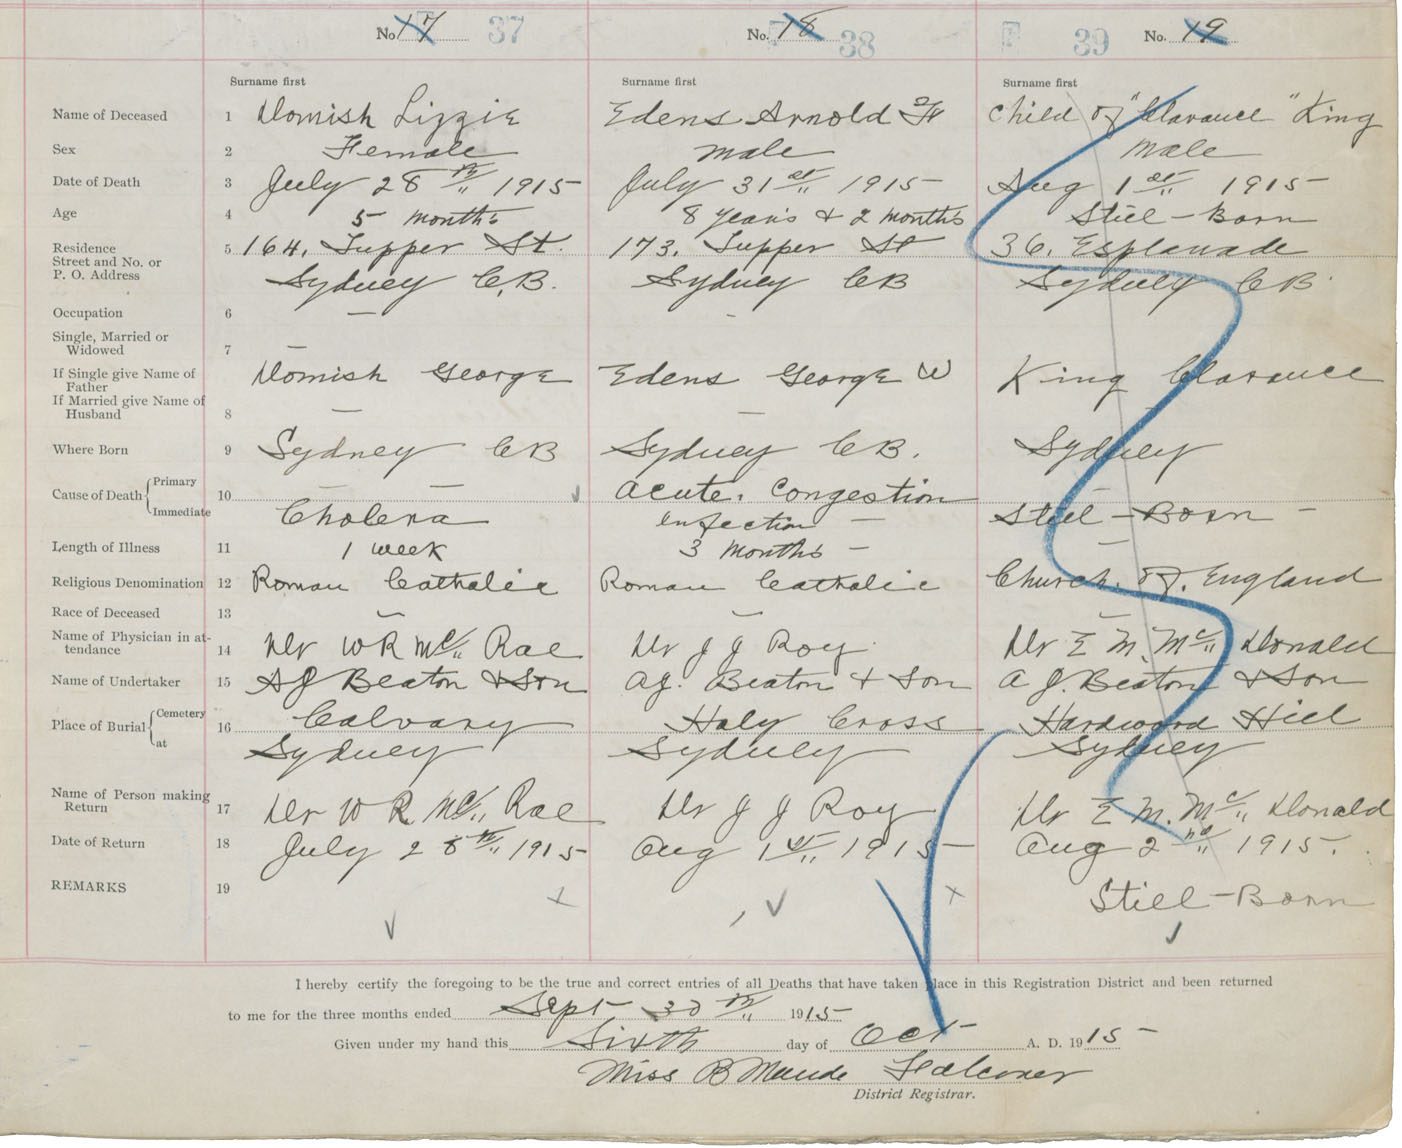 No. 17 37 No. 18 38 F 39 No. 19
Surname first Surname first Surname first
Name of Deceased 1 Domish Lizzie Edens Arnold F Child of "Clarance" King
Sex 2 Female Male Male
Date of Death 3 July 28th 1915 July 31st 1915 Aug 1st 1915
Age 4 5 months 8 years & 2 months Still-Born
Residence 5 164. Tupper St. 173. Tupper St 36. Esplanade
Street and No. or
P. O. Address Sydney C.B. Sydney CB Sydney CB
Occupation 6 — -
Single, Married or
Widowed 7 —
If Single give Name of
Father Domish George Edens George W King Clarance
If Married give Name of
Husband 8 — — —
Where Born 9 Sydney CB Sydney CB. Sydney
Cause of Death { Primary 10 — — Acute. Congestion —
Immediate Cholera Infection — Still-Born —
Length of Illness 11 1 week 3 months — —
Religious Denomination 12 Roman Catholic Roman Catholic Church. of. England
Race of Deceased 13 — — —
Name of Physician in at-
tendance 14 Dr W R Mc Rae Dr J J Roy Dr E M. Mc Donald
Name of Undertaker 15 A J Beaton & Son A J. Beaton & Son A J. Beaton & Son
Place of Burial { Cemetery 16 Calvary Holy Cross Hardwood Hill
at Sydney Sydney Sydney
Name of Person making
Return 17 Dr W R Mc Rae Dr J J Roy Dr E M. Mc Donald
Date of Return 18 July 28th 1915 Aug 1st 1915 Aug 2nd 1915.
REMARKS 19 Still-Born
I hereby certify the foregoing to be the true and correct entries of all Deaths that have taken place in this Registration District and been returned
to me for the three months ended Sept 30th 1915
Given under my hand this Sixth day of Oct A. D. 1915
Miss B Maude Falconer
District Registrar.